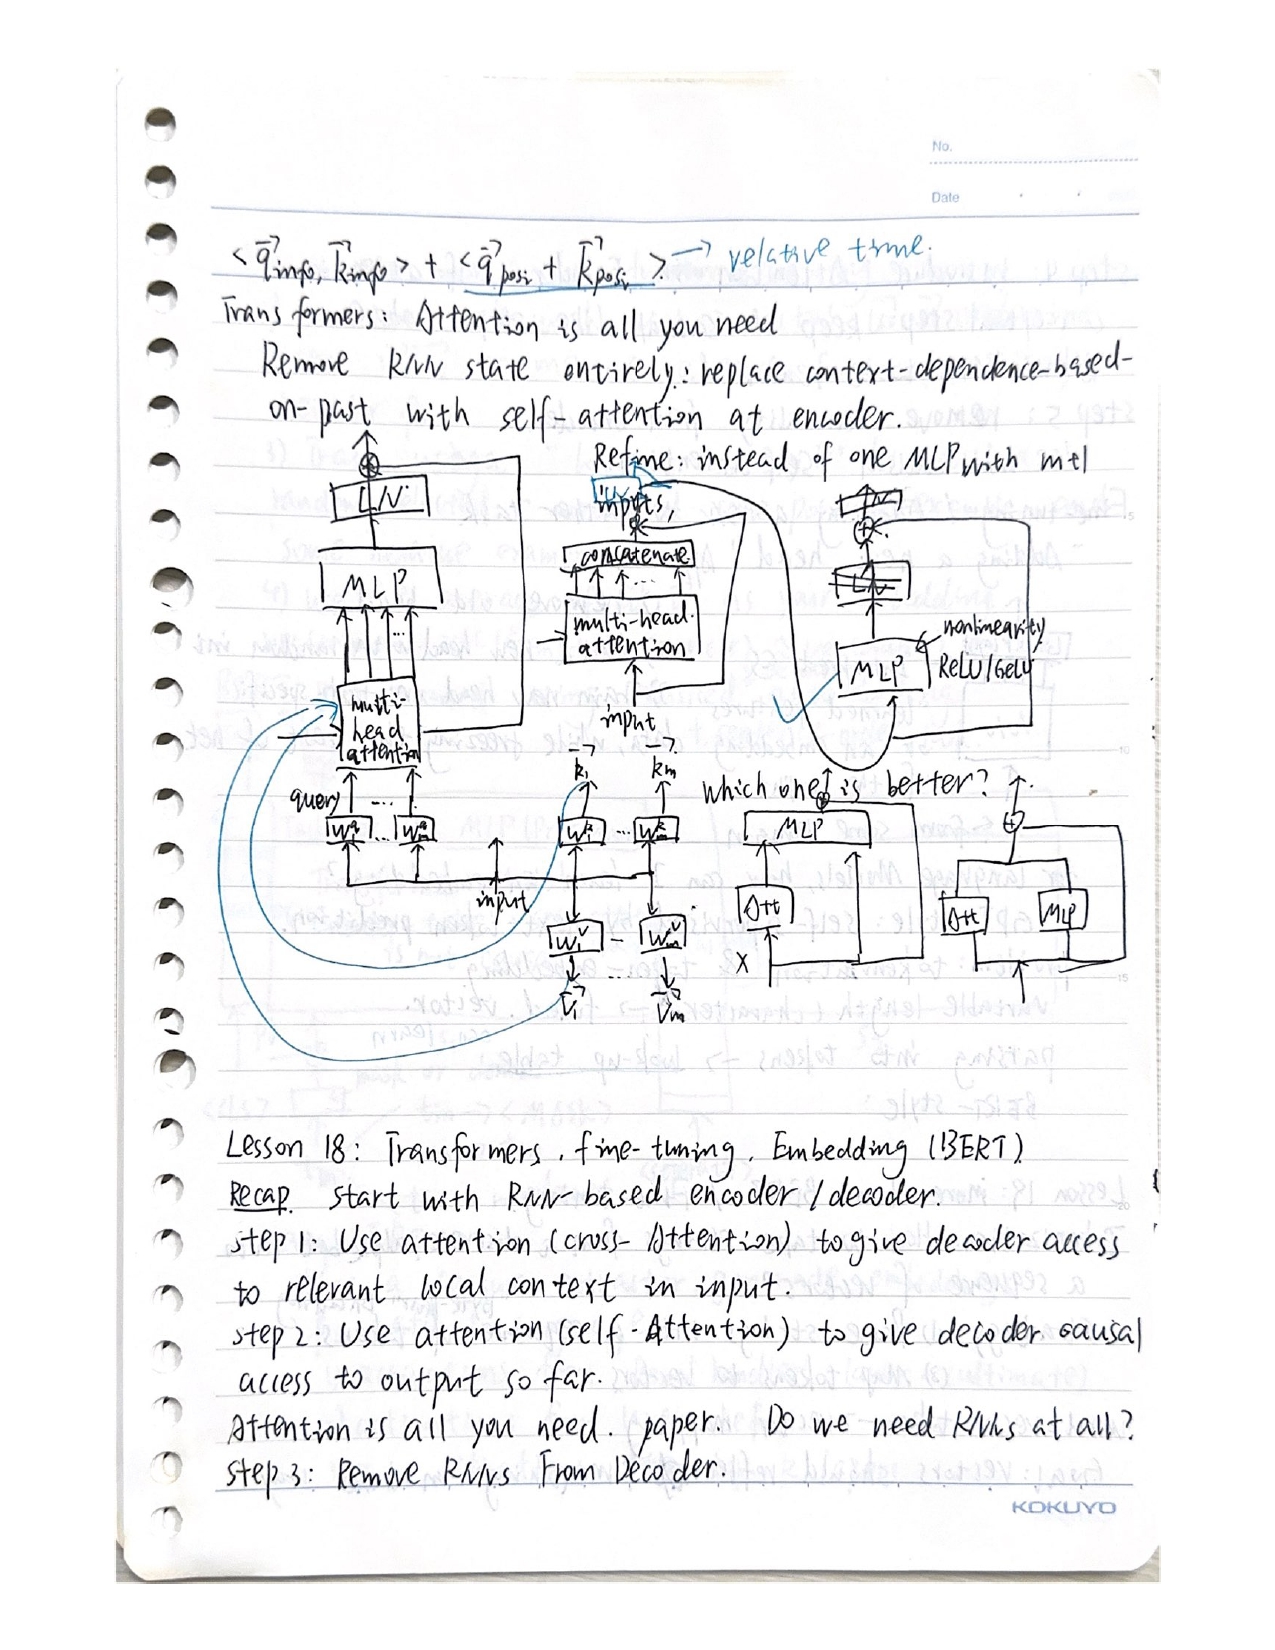 No.
Date
< q⃗info, k⃗info > + < q⃗posi + k⃗posi > → relative time.
Transformers: Attention is all you need
Remove RNN state entirely: replace context-dependence-based-
on-past with self-attention at encoder.
Refine: instead of one MLP with m+1
inputs,
LN
MLP
...
multi-
head
attention
query
...
W₁^q ... Wm^q
input
concatenate
...
multi-head
attention
input
k⃗₁ k⃗m
W₁^k ... Wm^k
W₁^v – Wm^v
...
V⃗₁ V⃗m
LN
LN
MLP
nonlinearity
ReLU/GeLU
which one is better?
MLP
Att
X
Att
MLP
Lesson 18: Transformers, fine-tuning, Embedding (BERT)
Recap. Start with RNN-based encoder/decoder.
step 1: Use attention (cross-Attention) to give decoder access
to relevant local context in input.
step 2: Use attention (self-Attention) to give decoder causal
access to output so far.
Attention is all you need. paper. Do we need RNNs at all?
step 3: Remove RNNs From Decoder.
KOKUYO